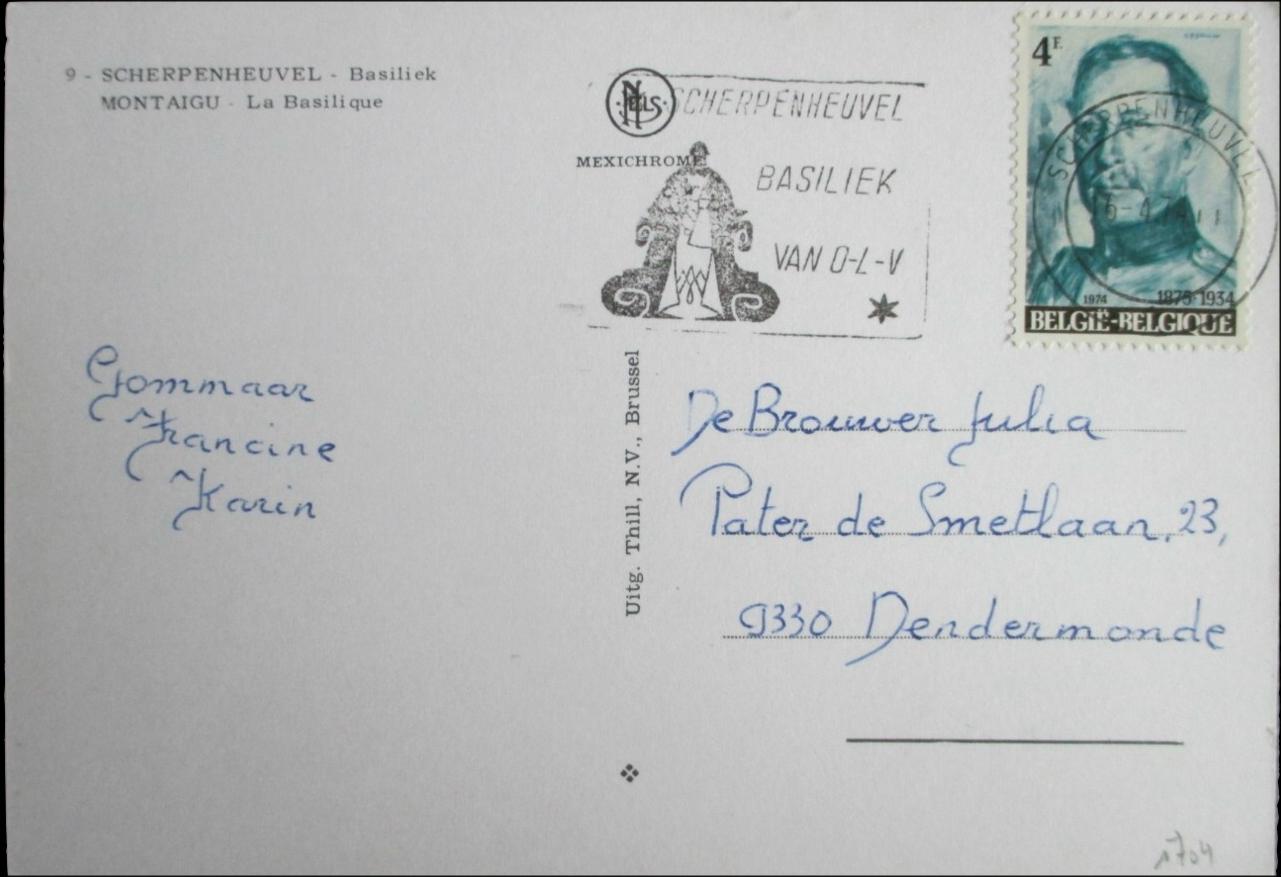 9 - SCHERPENHEUVEL - Basiliek
MONTAIGU - La Basilique
NELS
MEXICHROME
SCHERPENHEUVEL
BASILIEK
VAN O-L-V
4F.
SCHERPENHEUVEL
1974
1875-1934
BELGIË-BELGIQUE
Gommaar
Francine
Karin
Uitg. Thill, N.V., Brussel
De Brouwer Julia
Pater de Smetlaan, 23,
9330 Dendermonde